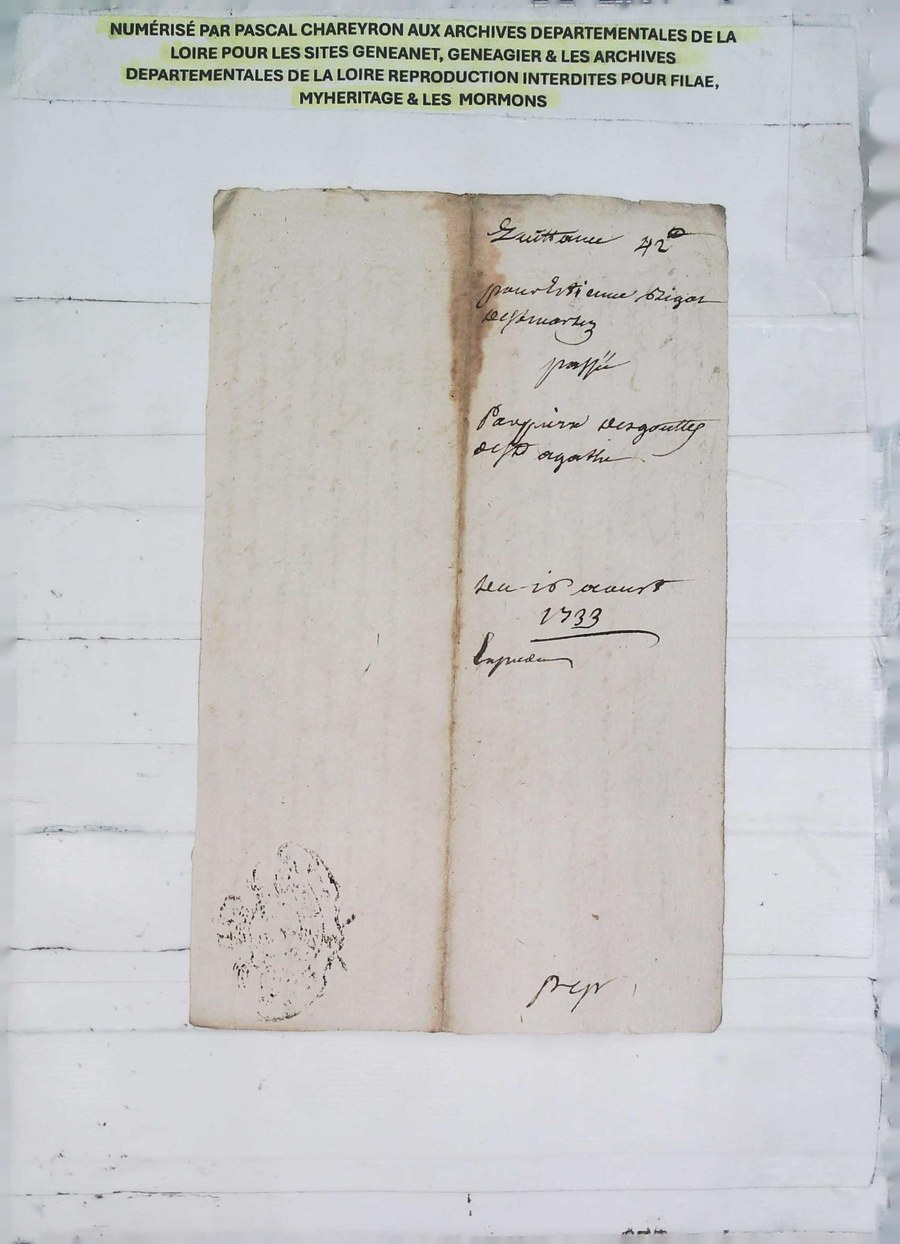 NUMÉRISÉ PAR PASCAL CHAREYRON AUX ARCHIVES DEPARTEMENTALES DE LA
LOIRE POUR LES SITES GENEANET, GENEAGIER & LES ARCHIVES
DEPARTEMENTALES DE LA LOIRE REPRODUCTION INTERDITES POUR FILAE,
MYHERITAGE & LES MORMONS
Quittance 42
pour Estienne Rigot
passée
Par pierre desgouttes
de Ste agathe
du 16 aoust
1733